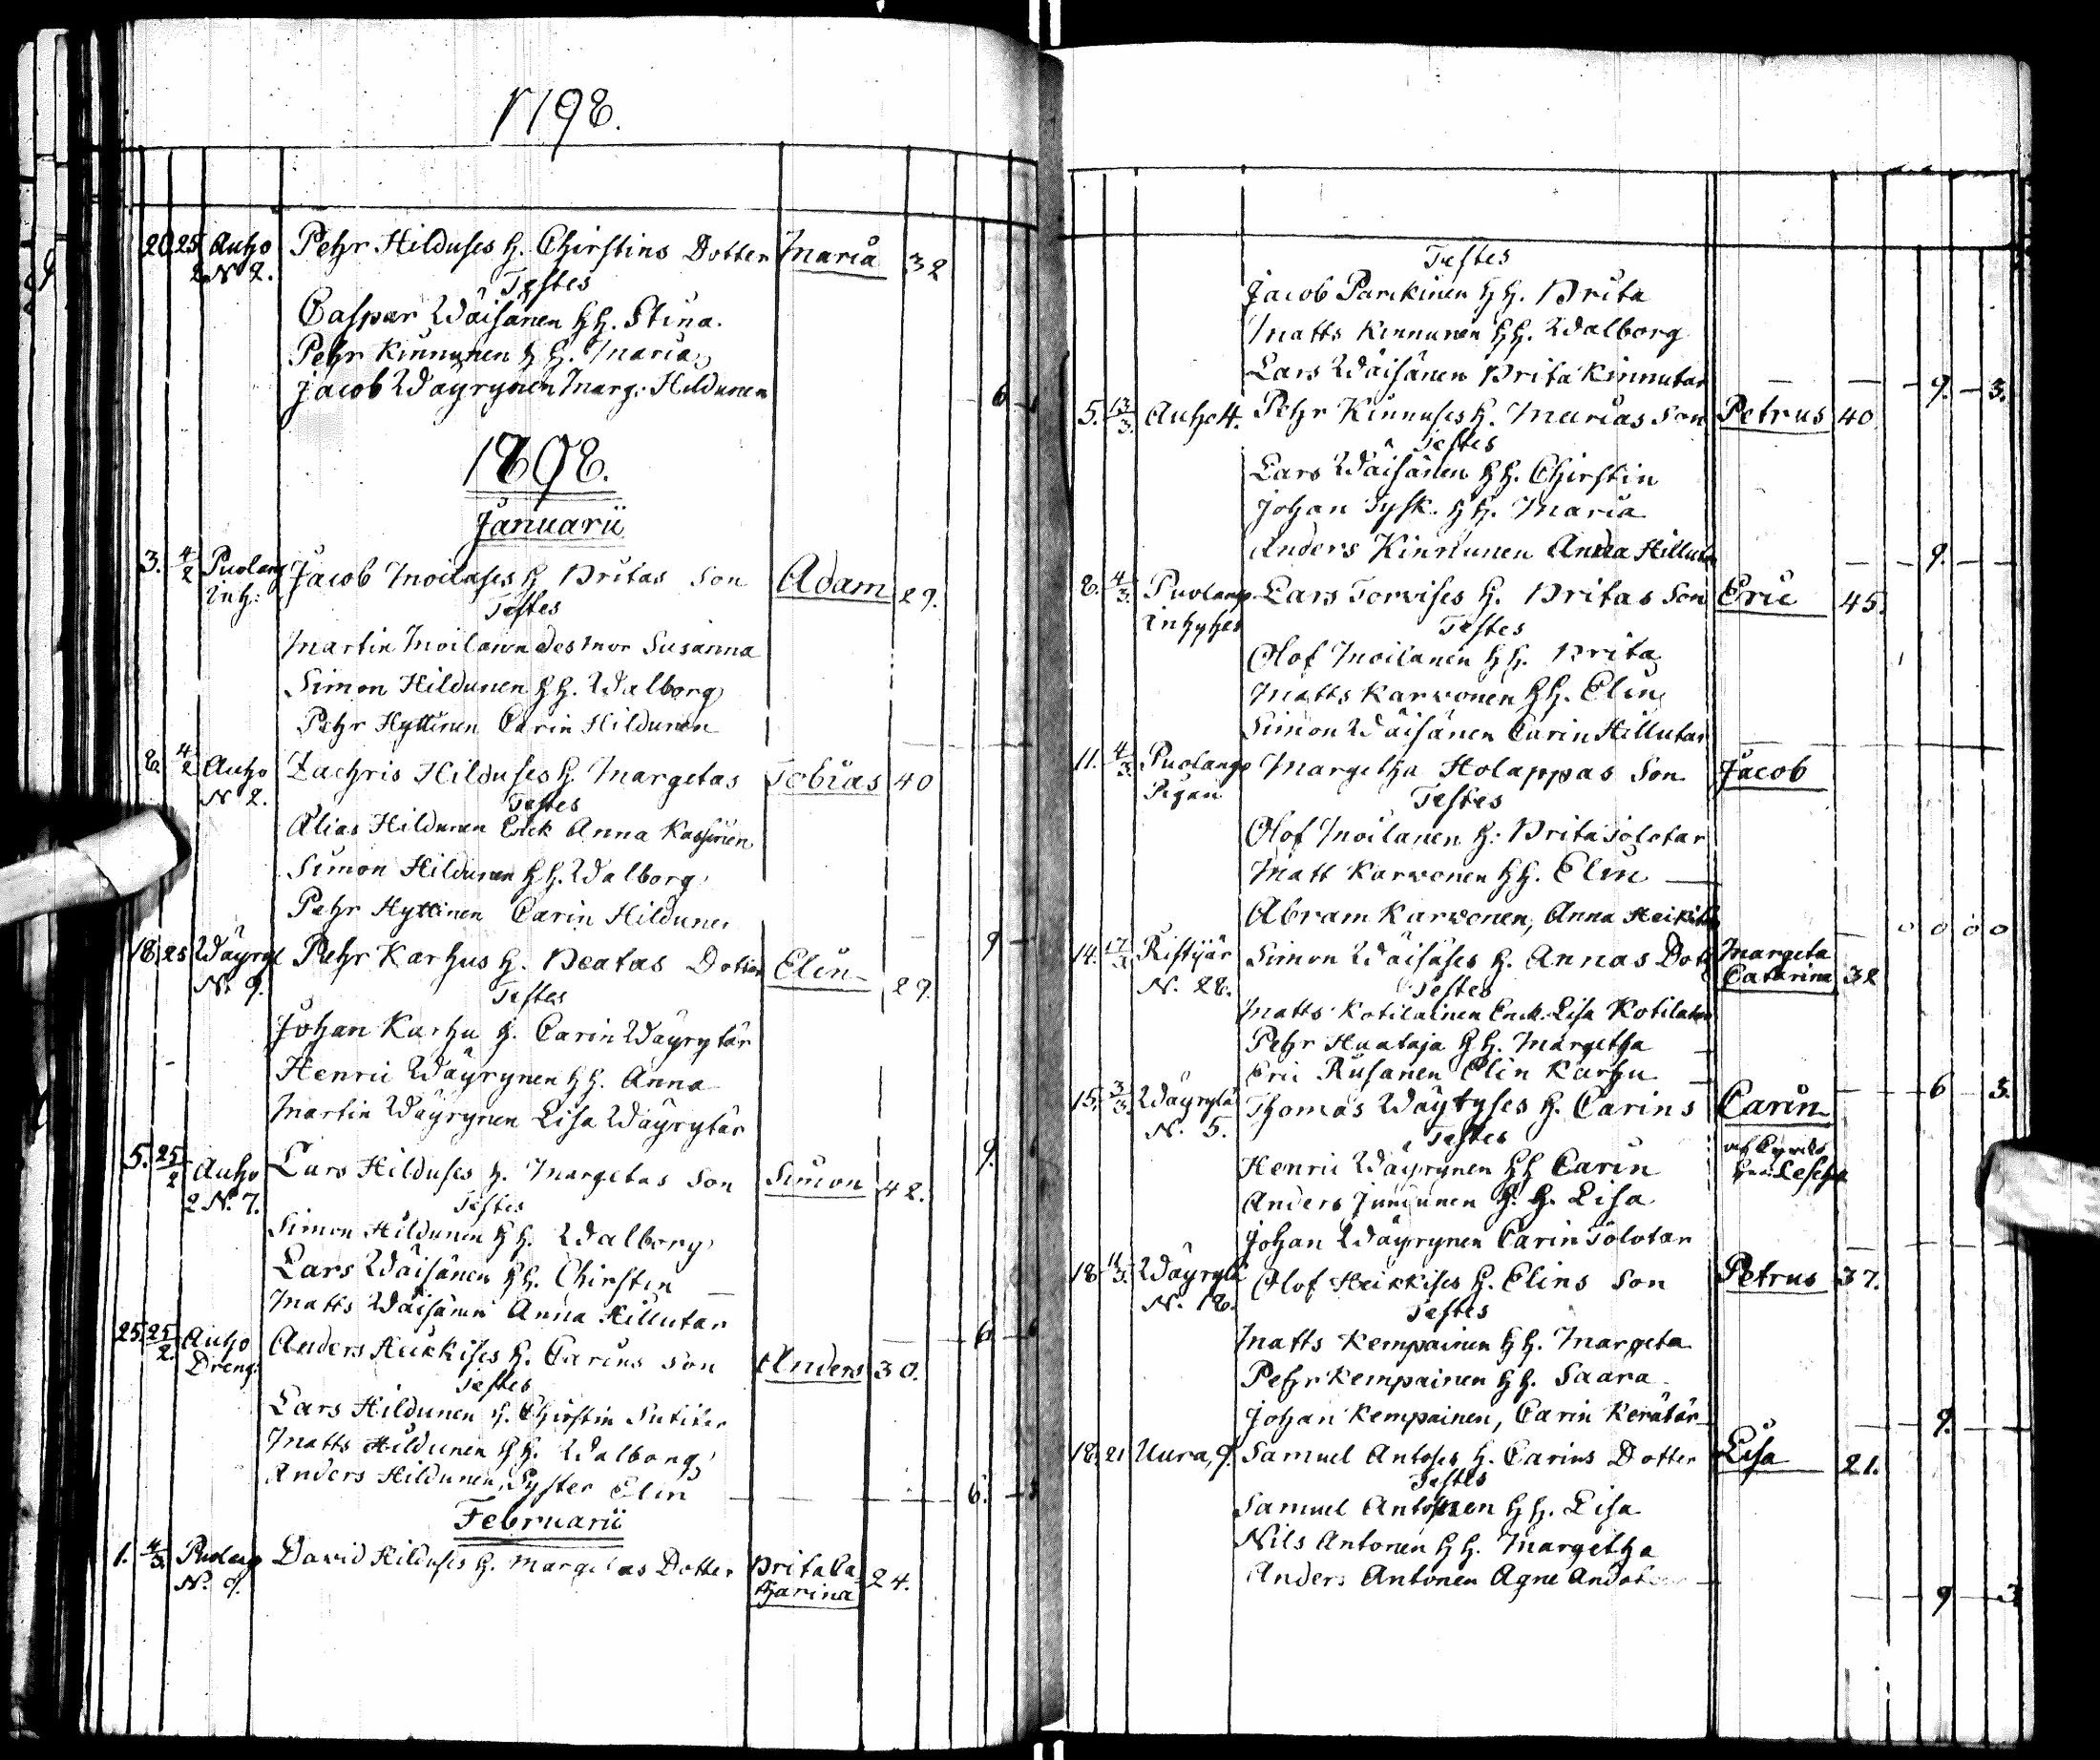 1798.
20. 25 Auho Pehr Hilduses h. Chirstins Dotter Maria 32
2 N 2. Testes
Caspar Wäisänen hh. Stina.
Pehr Kinnunen h h. Maria
Jacob Wäyrynen Marg: Hildunen 6
1808.
Januarii
3. 4/2 Puolang Jacob Moilases h Britas Son Adam 29.
Inh: Testes
Martin Moilanen des mor Susanna
Simon Hildunen hh. Walborg
Pehr Hyttinen Carin Hildunen
8. 4/2 Auho Zachris Hilduses h. Margetas Tobias 40
N 2. Testes
Elias Hildunen Enck Anna
Simon Hildunen hh. Walborg
Pehr Hyttinen Carin Hildunen
9
18. 25 Wäyryl Pehr Karhus h. Beatas Dotter Elin 29.
N. 9. Testes
Johan Karhu h. Carin Wäyrytär
Henric Wäyrynen hh. Anna
Martin Wäyrynen Lisa Wäyrytär
9.
5. 25/2 Auho Lars Hilduses h. Margetas Son Simon 42.
2 N. 7. Testes
Simon Hildunen hh. Walborg
Lars Wäisänen hh. Chirstin
Matts Wäisänen Anna Hillutar
6
25. 25/2. Auho Anders Heikkises h. Carins Son Anders 30.
Dreng: Testes
Lars Hildunen h. Chirstin
Matts Hildunen hh. Walborg
Anders Hildunen, Syster Elin 6.
Februarii
1. 4/3. David Hilduses h. Margetas Dotter Brita Ca- 24.
N. tharina
Testes
Jacob Parckinen hh. Brita
Matts Kinnunen hh. Walborg
Lars Wäisänen Brita Kinnutar 9. 3.
5. 13/3. Auho 4. Pehr Kinnuses h. Marias Son Petrus 40
Testes
Lars Wäisänen hh. Chirstin
Johan Tysk. hh. Maria
Anders Kinnunen Anna Hillutar 9.
8. 4/3. Puolang Lars Torvises h. Britas Son Eric 45.
Inhyhes Testes
Olof Moilanen hh. Brita
Matts Karvonen hh. Elin
Simon Wäisänen Carin Hillutar
11. 4/3. Puolango Margetha Holappas Son Jacob
Pigan Testes
Olof Moilanen h. Brita
Matt Karvonen hh. Elin
Abram Karvonen, Anna
0 0 0 0
14. Ristijär Simon Wäisäses h. Annas Dot Margeta
N. 28. Testes Catarina 32
Matts Kotilainen Enck. Lisa Kotilatar
Pehr Huataja hh. Margetha
Eric Rusanen Elin Karhu 6 3.
15. 3/3. Wäyrylä Thomas Wäyryses h. Carins Carin
N. 5. Testes
Henric Wäyrynen hh Carin
Anders Juntunen h. h. Lisa
Johan Wäyrynen Carin
18 Wäyrylä Olof Heikkises h. Elins Son Petrus 37.
N. 18. Testes
Matts Kempainen hh. Margeta
Pehr Kempainen hh. Saara
Johan Kempainen, Carin Kerätär 9.
18. 21 Uura, 9. Samuel Antoses h. Carins Dotter Lisa 21.
Testes
Samuel Antonen hh. Lisa
Nils Antonen hh. Margetha
Anders Antonen Agne
9 3